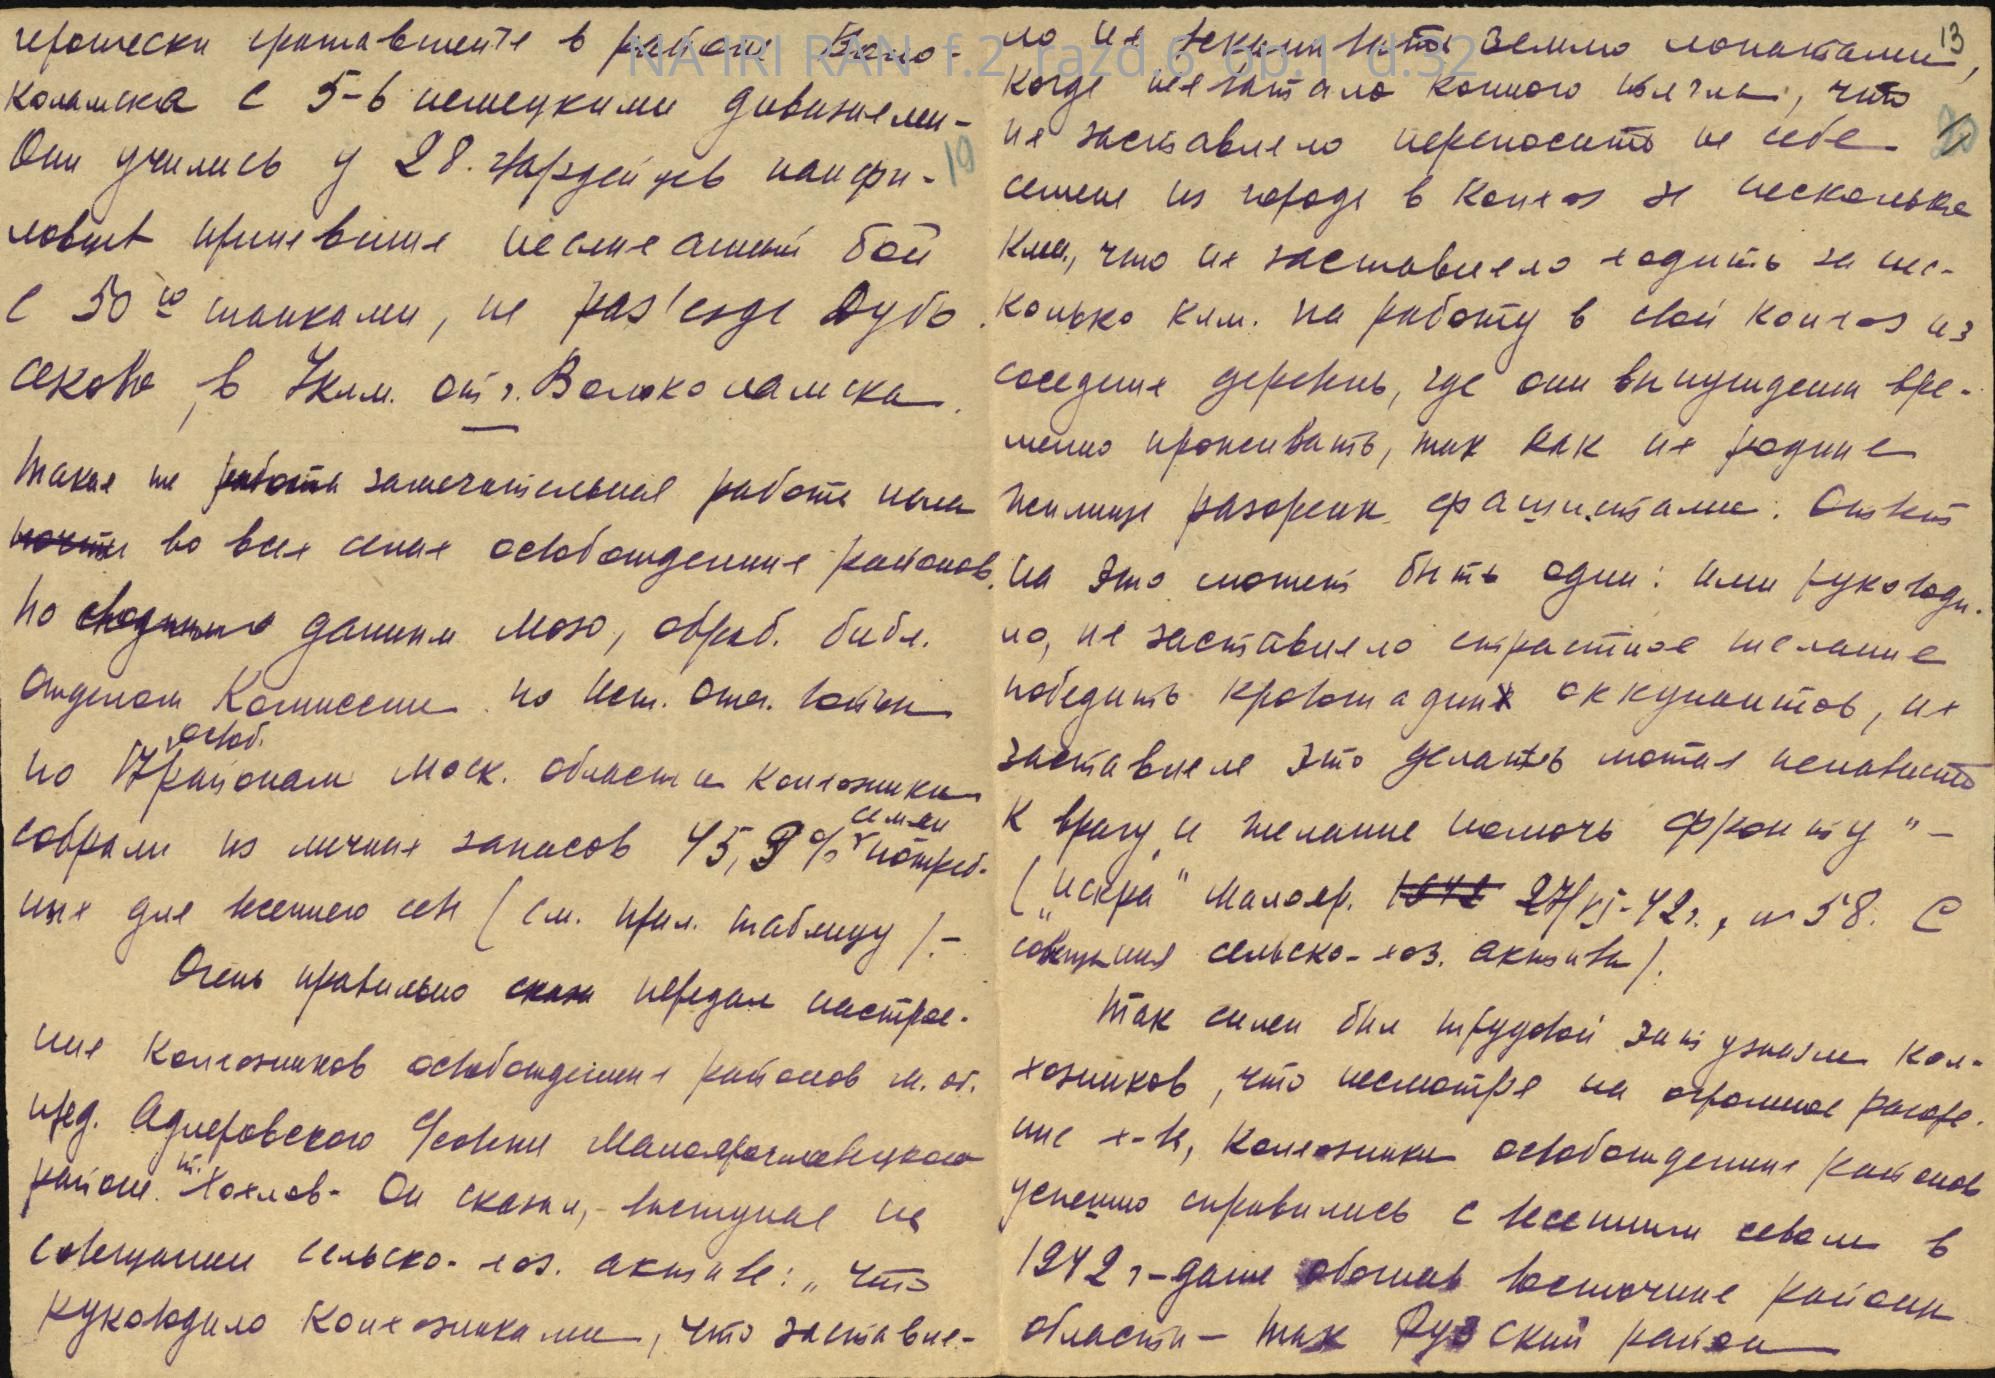 героически сражавшейся в районе Воло-
коламска с 5-6 немецкими дивизиями-
Они учились у 28. гвардейцев панфи-
ловцев принявшие неслыханный бой
с 50ю танками, на раз'езде Дубо
секово, в 7клм. от г. Волоколамска.
Такая же работа замечательная работа шла
почти во всех селах освобожденных районов.
По сводным данным МОЗО, обраб. библ.
отделом Комиссии по ист. отеч. войны
по 17 освоб. районам Моск. области колхозники
собрали из личных запасов 45,9% семян потреб-
ных для весеннего сева (см. прил. таблицу).-
Очень правильно сказа передал настрое-
ние колхозников освобожденных районов М. об.
пред. Малоярославецкого
района т. Хохлов- Он сказал,- выступая на
совещании сельско-хоз. актива: "Что
руководило колхозниками, что заставля-
13
NA IRI RAN f.2 razd.6 op.1 d.32
ло их вскапывать землю лопатами,
когда не хватало конного тягла, что
их заставляло переносить на себе
семена из города в колхоз за несколько
клм., что их заставляло ходить за нес-
колько клм. на работу в свой колхоз из
соседних деревень, где они вынуждены вре-
менно проживать, так как их родные
жилища разорены фашистами. Ответ
на это может быть один: ими руководи-
ло, их заставляло страстное желание
победить кровожадных оккупантов, их
заставляла это делать лютая ненависть
к врагу и желание помочь фронту"-
("Искра" Малояр. 1942 27/VI-42г., № 58. С
совещания сельско-хоз. актива).
Так силен был трудовой энтузиазм кол-
хозников, что несмотря на огромное разоре-
ние х-в, колхозники освобожденных районов
успешно справились с весенним севом в
1942г-даже обогнав восточные районы
области- так Рузский район
19
20